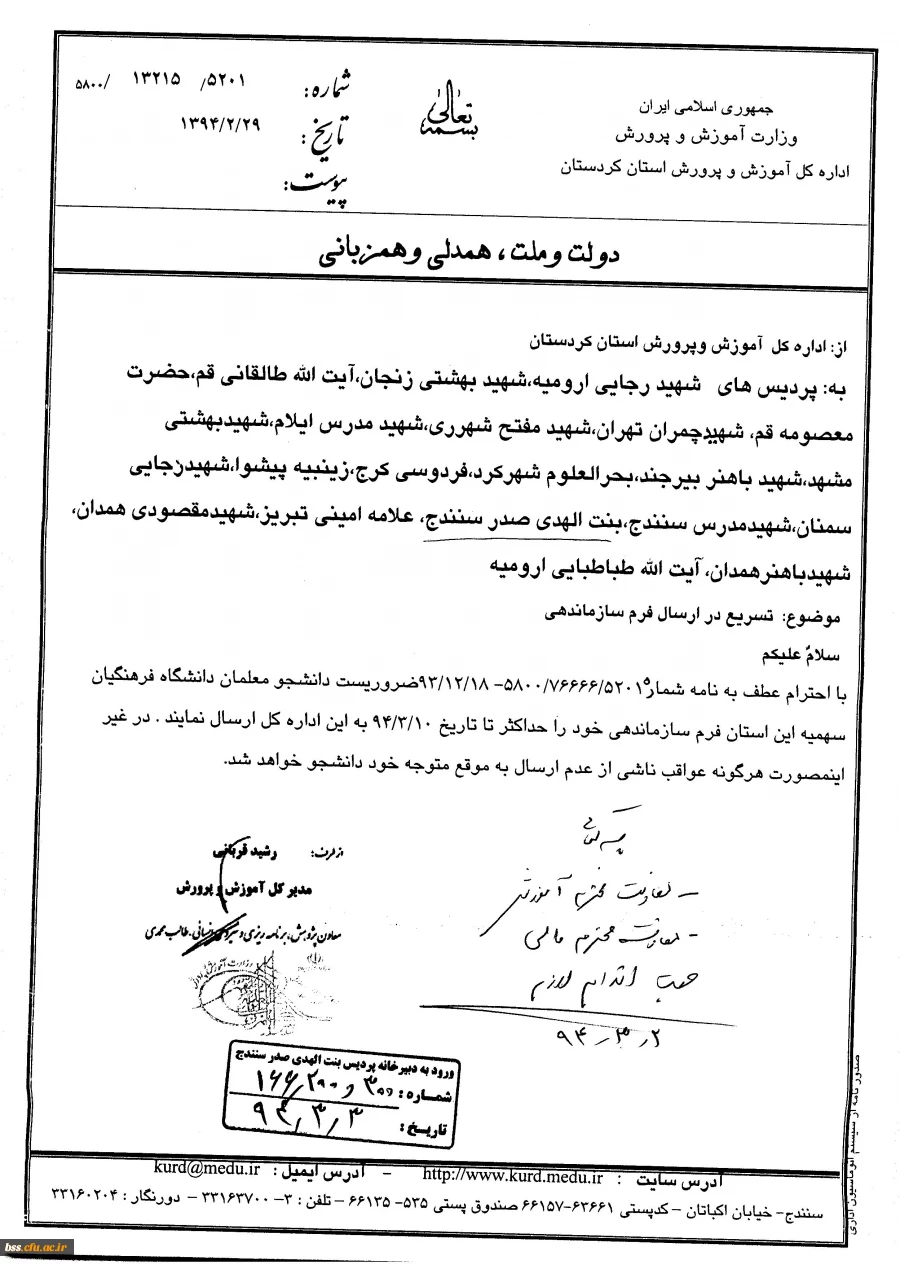 جمهوری اسلامی ایران
وزارت آموزش و پرورش
اداره کل آموزش و پرورش استان کردستان
بسمه تعالی
شماره: ۵۲۰۱/ ۱۳۲۱۵ /۵۸۰۰
تاریخ: ۱۳۹۴/۲/۲۹
پیوست:
دولت و ملت، همدلی و همزبانی
از: اداره کل آموزش وپرورش استان کردستان
به: پردیس های شهید رجایی ارومیه،شهید بهشتی زنجان،آیت الله طالقانی قم،حضرت
معصومه قم، شهیدچمران تهران،شهید مفتح شهرری،شهید مدرس ایلام،شهیدبهشتی
مشهد،شهید باهنر بیرجند،بحرالعلوم شهرکرد،فردوسی کرج،زینبیه پیشوا،شهیدرجایی
سمنان،شهیدمدرس سنندج،بنت الهدی صدر سنندج، علامه امینی تبریز،شهیدمقصودی همدان،
شهیدباهنرهمدان، آیت الله طباطبایی ارومیه
موضوع: تسریع در ارسال فرم سازماندهی
سلامٌ علیکم
با احترام عطف به نامه شماره ۵۸۰۰/۷۶۶۶۶/۵۲۰۱- ۹۳/۱۲/۱۸ضروریست دانشجو معلمان دانشگاه فرهنگیان
سهمیه این استان فرم سازماندهی خود را حداکثر تا تاریخ ۹۴/۳/۱۰ به این اداره کل ارسال نمایند . در غیر
اینصورت هرگونه عواقب ناشی از عدم ارسال به موقع متوجه خود دانشجو خواهد شد.
از طرف: رشید قربانی
مدیر کل آموزش و پرورش
معاون پژوهش، برنامه ریزی و نیروی انسانی. طالب محمدی
– معاونت محترم آموزشی
– معاونت محترم مالی
جهت اقدام لازم
۹۴/۳/۲
ورود به دبیرخانه پردیس بنت الهدی صدر سنندج
شماره:
تاریخ: ۹۴/۳/۳
آدرس سایت : http://www.kurd.medu.ir – آدرس ایمیل : kurd@medu.ir
سنندج- خیابان اکباتان – کدپستی ۶۳۶۶۱-۶۶۱۵۷ صندوق پستی ۵۳۵- ۶۶۱۳۵ – تلفن : ۳- ۳۳۱۶۳۷۰۰ – دورنگار : ۳۳۱۶۰۲۰۴
صدور نامه از سیستم اتوماسیون اداری
bss.cfu.ac.ir